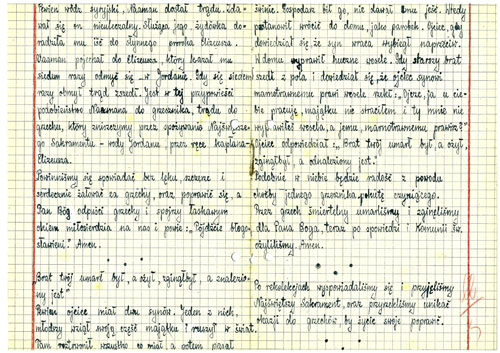 Pewien wódz syryjski, Naaman dostał trądu. Zda-
wał się on nieuleczalny. Służąca jego, żydówka do-
radziła mu iść do słynnego proroka Elizeusza.
Naaman pojechał do Elizeusza, który kazał mu
siedem razy odmyć się w Jordanie. Gdy się siedem
razy obmył trąd zszedł. Jest w tej przypowieści
podobieństwo Naamana do grzesznika, trądu do
grzechu, który zniszczymy przez spożywanie Najśw.
go Sakramentu – wody Jordanu, przez ręce kapłana-
Elizeusza.
Powinniśmy się spowiadać bez lęku, szczerze i
serdecznie żałować za grzechy, oraz poprawić się, a
Pan Bóg odpuści grzechy i spojrzy łaskawym
okiem miłosierdzia na nas i powie: "Pójdźcie błogo-
sławieni." Amen.
"Brat twój umarł był, a ożył, zginął był, a znalezio-
ny jest"
Pewien ojciec miał dwu synów. Jeden z nich,
młodszy wziął swoją część majątku i ruszył w świat.
Tam roztrwonił wszystko co miał, a potem pasał
świnie. Gospodarz bił go, nie dawał mu jeść. Wtedy
postanowił wrócić do domu, jako parobek. Ojciec, gdy
dowiedział się, że syn wraca wybiegł naprzeciw.
W domu wyprawił huczne wesele. Gdy starszy brat
szedł z pola i dowiedział się, że ojciec synowi
marnotrawnemu prawi wesele rzekł: "Ojcze, ja u cie-
bie pracuję, majątku nie straciłem i ty mnie nie
wyprawiłeś wesela, a jemu, marnotrawnemu prawisz?"
Ojciec odpowiedział: "Brat twój umarł był, a ożył,
zginął był, a odnaleziony jest."
Podobnie w niebie będzie radość z powodu
choćby jednego grzesznika pokutę czyniącego.
Przez grzech śmiertelny umarliśmy i zginęliśmy
dla Pana Boga, teraz po spowiedzi i Komunii św.
ożyliśmy. Amen.
Po rekolekcjach wyspowiadaliśmy się i przyjęliśmy
Najświętszy Sakrament, oraz przyrzekliśmy unikać
okazji do grzechów, by życie swoje poprawić.